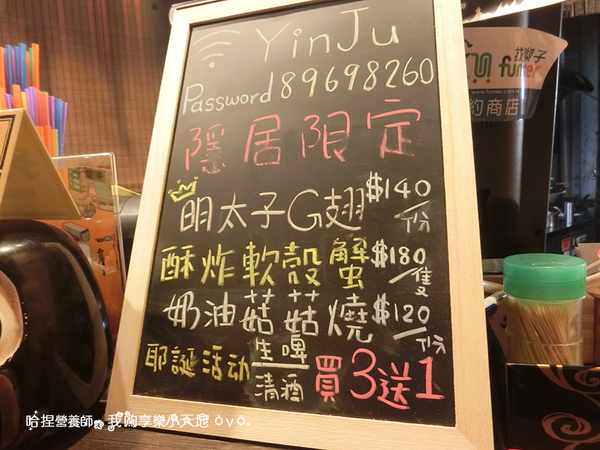 YinJu
Password 189698260
隱居限定
明太子G翅 $140/份
酥炸軟殼蟹 $180/隻
奶油菇菇燒 $120/份
耶誕活动 生啤 清酒 買3送1
找樂子
funner
約商店
哈捏營養師。我的享樂小天地 ovo。